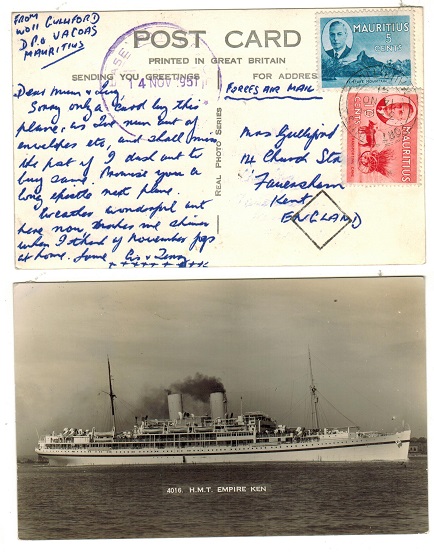 FROM
WOII GULLIFORD
D.P.O VACOAS
MAURITIUS
POST CARD
PRINTED IN GREAT BRITAIN
SENDING YOU GREETINGS
FOR ADDRES
14 NOV 1951
FORCES AIR MAIL
MAURITIUS
5
CENTS
MAURITIUS
CENTS
Real Photo Series
Dear Mum &
Sorry only a card by this
plane, as I've run out of
envelopes etc, and shall miss
the post if I dash out to
buy some. Promise you a
long epistle next plane.
Weather wonderful out
here now, makes me
when I think of November fogs
at home. Love
Mrs Gulliford
124 Church St
Faversham
Kent
ENGLAND
4016. H.M.T. EMPIRE KEN